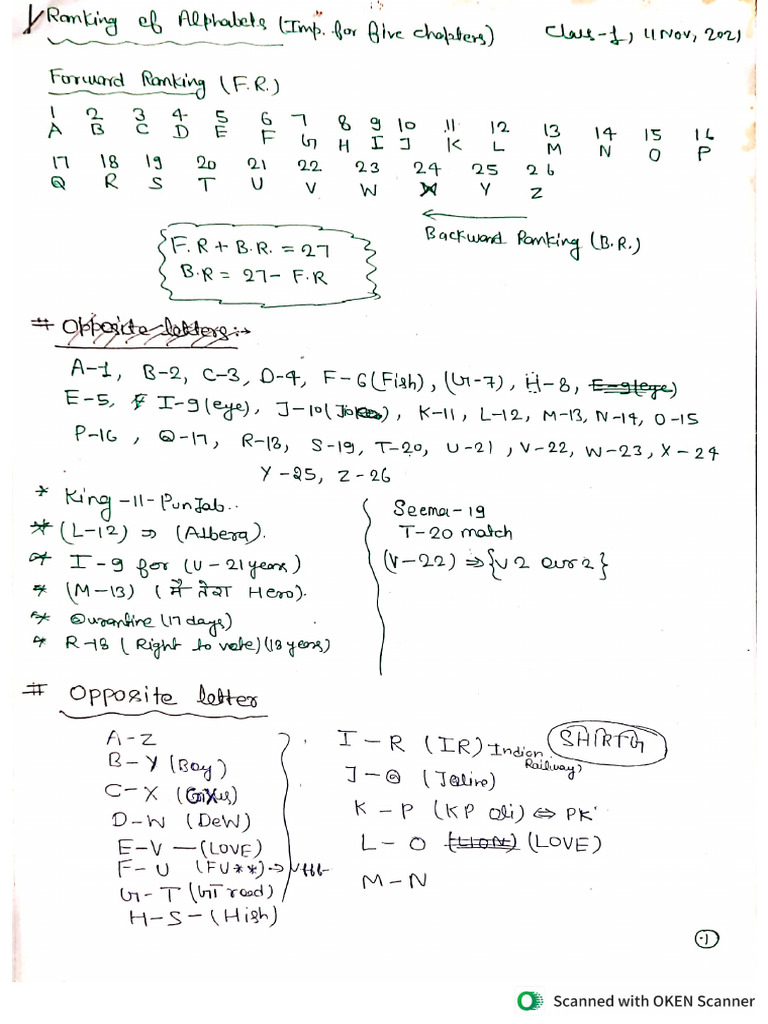 Ranking of Alphabets (Imp. for five chapters) Class-1, 11 Nov, 2021
Forward Ranking (F.R.)
1 2 3 4 5 6 7 8 9 10 11 12 13 14 15 16
A B C D E F G H I J K L M N O P
17 18 19 20 21 22 23 24 25 26
Q R S T U V W X Y Z
Backward Ranking (B.R.)
F.R + B.R. = 27
B.R = 27 - F.R
# Opposite letters:→
A-1, B-2, C-3, D-4, F-6 (Fish), (G-7), H-8, E-9(eye)
E-5, I-9(eye), J-10(Joker), K-11, L-12, M-13, N-14, O-15
P-16, Q-17, R-18, S-19, T-20, U-21, V-22, W-23, X-24
Y-25, Z-26
* King-11-Punjab..
* (L-12) ⇒ (Albera).
* I-9 for (U-21 years)
* (M-13) (मैं तेरा Hero).
* Qurantine (17 days)
* R-18 (Right to vote) (18 years)
Seema-19
T-20 match
(V-22) ⇒ {V 2 aur 2}
# Opposite letter
A-Z
B-Y (Boy)
C-X
D-W (DeW)
E-V — (LOVE)
F-U (FU**) →
G-T (GT road)
H-S-(High)
I-R (IR) Indian Railway,
SHIRTG
J-Q
K-P (KP Oli) ⇔ PK
L-O (LION) (LOVE)
M-N
1
Scanned with OKEN Scanner